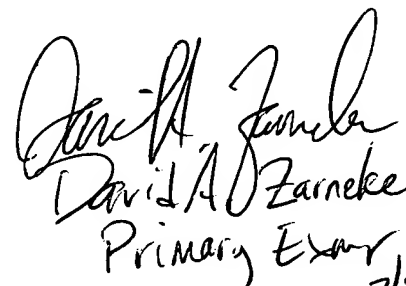 David A. Zarneke
David A. Zarneke
Primary Exmr